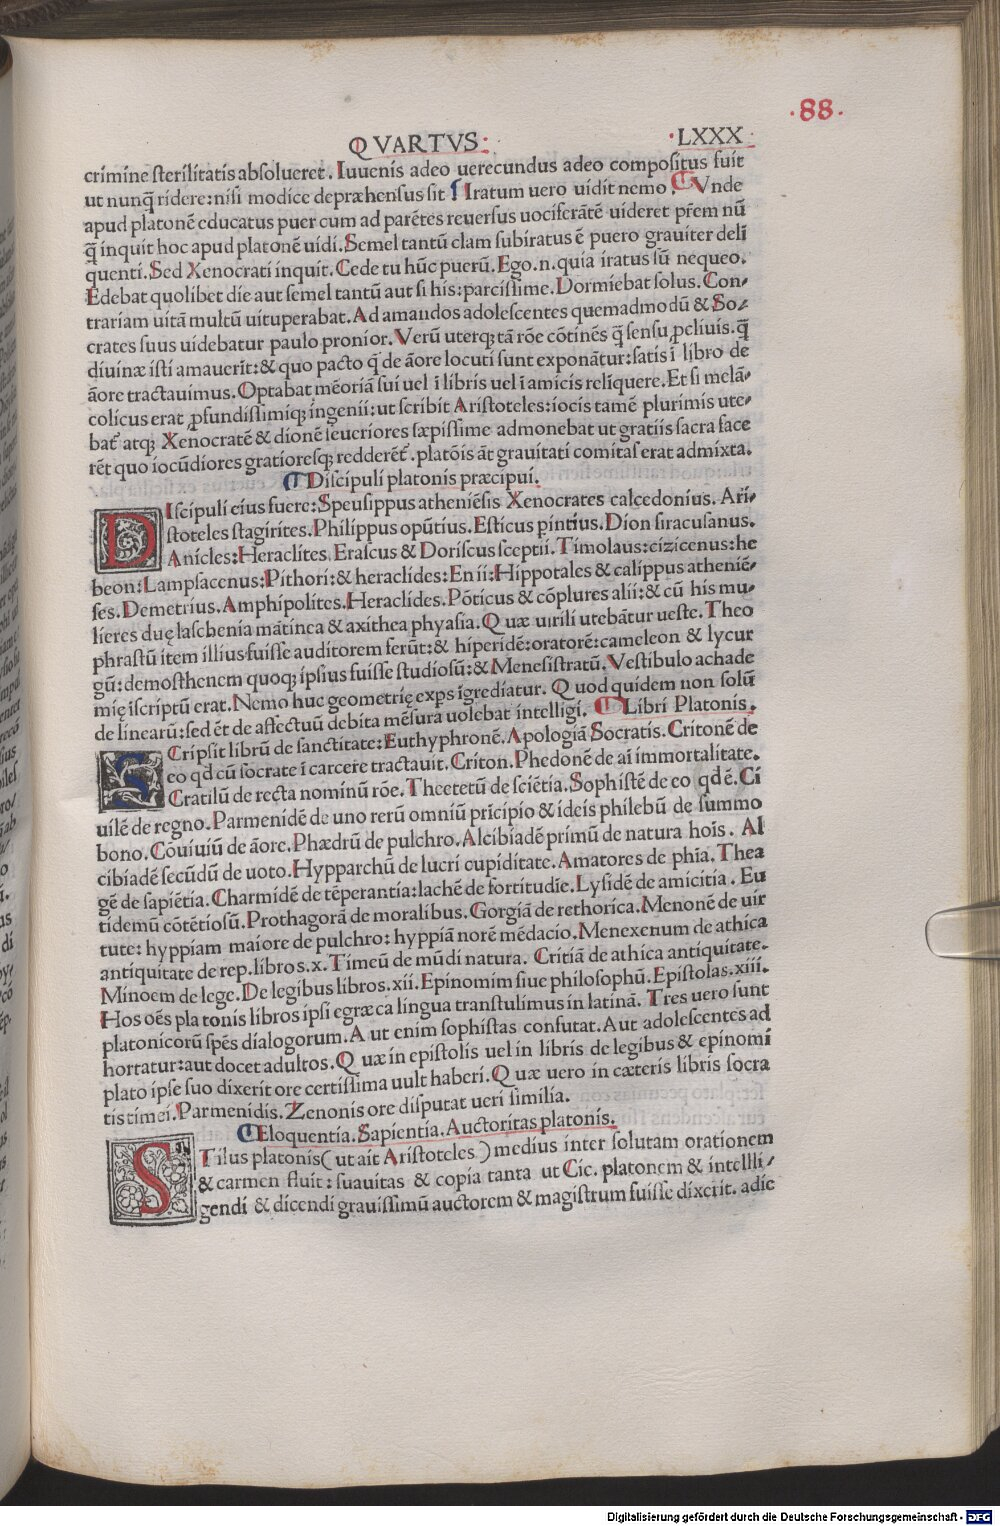 ·88·
QVARTVS: ·LXXX·
crimine sterilitatis absolueret. Iuuenis adeo uerecundus adeo compositus fuit
ut nunq̃ ridere:nisi modice depræhensus sit ¶ Iratum uero uidit nemo. ¶ Vnde
apud platonẽ educatus puer cum ad parẽtes reuersus uociferãtẽ uideret pr̃em nũ
q̃ inquit hoc apud platonẽ uidi. Semel tantũ clam subiratus ẽ puero grauiter deli
quenti. Sed Xenocrati inquit. Cede tu hũc puerũ. Ego.n.quia iratus sũ nequeo.
Edebat quolibet die aut semel tantũ aut si his:parcissime. Dormiebat solus. Con⸗
trariam uitã multũ uituperabat. Ad amandos adolescentes quemadmodũ & So⸗
crates suus uidebatur paulo pronior. Verũ uterqꝫ tã rõe cõtinẽs q̃ sensu ꝓcliuis. q̃
diuinæ isti amauerĩt:& quo pacto q̃ de ãore locuti sunt exponãtur:satis ĩ libro de
ãore tractauimus. Optabat mẽoriã sui uel ĩ libris uel ĩ amicis reliquere. Et si melã⸗
colicus erat ꝓfundissimiqꝫ ingenii: ut scribit Aristoteles:iocis tamẽ plurimis ute⸗
bat̃ atqꝫ Xenocratẽ & dionẽ seueriores sæpissime admonebat ut gratiis sacra face
rẽt quo iocũdiores gratioresqꝫ redderẽt̃. platõis ãt grauitati comitas erat admixta.
¶ Discipuli platonis præcipui.
DIscipuli eius fuere:Speusippus atheniẽsis Xenocrates calcedonius. Ari⸗
stoteles stagirites. Philippus opũtius. Esticus pintius. Dion siracusanus.
Anicles:Heraclites Erascus & Doriscus sceptii. Timolaus:cizicenus:he
beon:Lampsacenus:Pithori:& heraclides:Enii:Hippotales & calippus atheniẽ⸗
ses. Demetrius. Amphipolites. Heraclides. Põticus & cõplures alii:& cũ his mu⸗
lieres duę laschenia mãtinea & axithea phyasia. Quæ uirili utebãtur ueste. Theo
phrastũ item illius fuisse auditorem ferũt:& hiperidẽ:oratorẽ:cameleon & lycur
gũ:demosthenem quoqꝫ ipsius fuisse studiosũ:& Menesistratũ. Vestibulo achade
mię ĩscriptũ erat. Nemo huc geometrię exꝑs ĩgrediatur. Quod quidem non solũ
de linearũ:sed ẽt de affectuũ debita mẽsura uolebat intelligi. ¶ Libri Platonis.
SCripsit librũ de sanctitate:Euthyphronẽ. Apologiã Socratis. Critonẽ de
eo qd cũ socrate ĩ carcere tractauit. Criton. Phedonẽ de aĩ immortalitate.
Cratilũ de recta nominũ rõe. Theetetũ de sciẽtia. Sophistẽ de eo qd ẽ. Ci
uilẽ de regno. Parmenidẽ de uno rerũ omniũ pricipio & ideis philebũ de summo
bono. Cõuiuiũ de ãore. Phædrũ de pulchro. Alcibiadẽ primũ de natura hoĩs. Al
cibiadẽ secũdũ de uoto. Hypparchũ de lucri cupiditate. Amatores de phĩa. Thea
gẽ de sapiẽtia. Charmidẽ de tẽperantia:lachẽ de fortitudie. Lysidẽ de amicitia. Eu
tidemũ cõtẽtiosũ. Prothagorã de moralibus. Gorgiã de rethorica. Menonẽ de uir
tute: hyppiam maiore de pulchro: hyppiã norẽ mẽdacio. Menexenum de athica
antiquitate de rep. libros.x. Timeũ de mũdi natura. Critiã de athica antiquitate.
Minoem de lege. De legibus libros.xii. Epinomim siue philosophũ. Epistolas.xiii.
Hos oẽs platonis libros ipsi egræca lingua transtulimus in latinã. Tres uero sunt
platonicorũ spẽs dialogorum. Aut enim sophistas confutat. Aut adolescentes ad
hortatur:aut docet adultos. Quæ in epistolis uel in libris de legibus & epinomi
plato ipse suo dixerit ore certissima uult haberi. Quæ uero in cæteris libris socra
tis timei. Parmenidis. Zenonis ore disputat ueri similia.
¶ Eloquentia. Sapientia. Auctoritas platonis.
STilus platonis (ut ait Aristoteles) medius inter solutam orationem
& carmen fluit: suauitas & copia tanta ut Cic. platonem & intellli⸗
gendi & dicendi grauissimũ auctorem & magistrum fuisse dixerit. adic
Digitalisierung gefördert durch die Deutsche Forschungsgemeinschaft - DFG